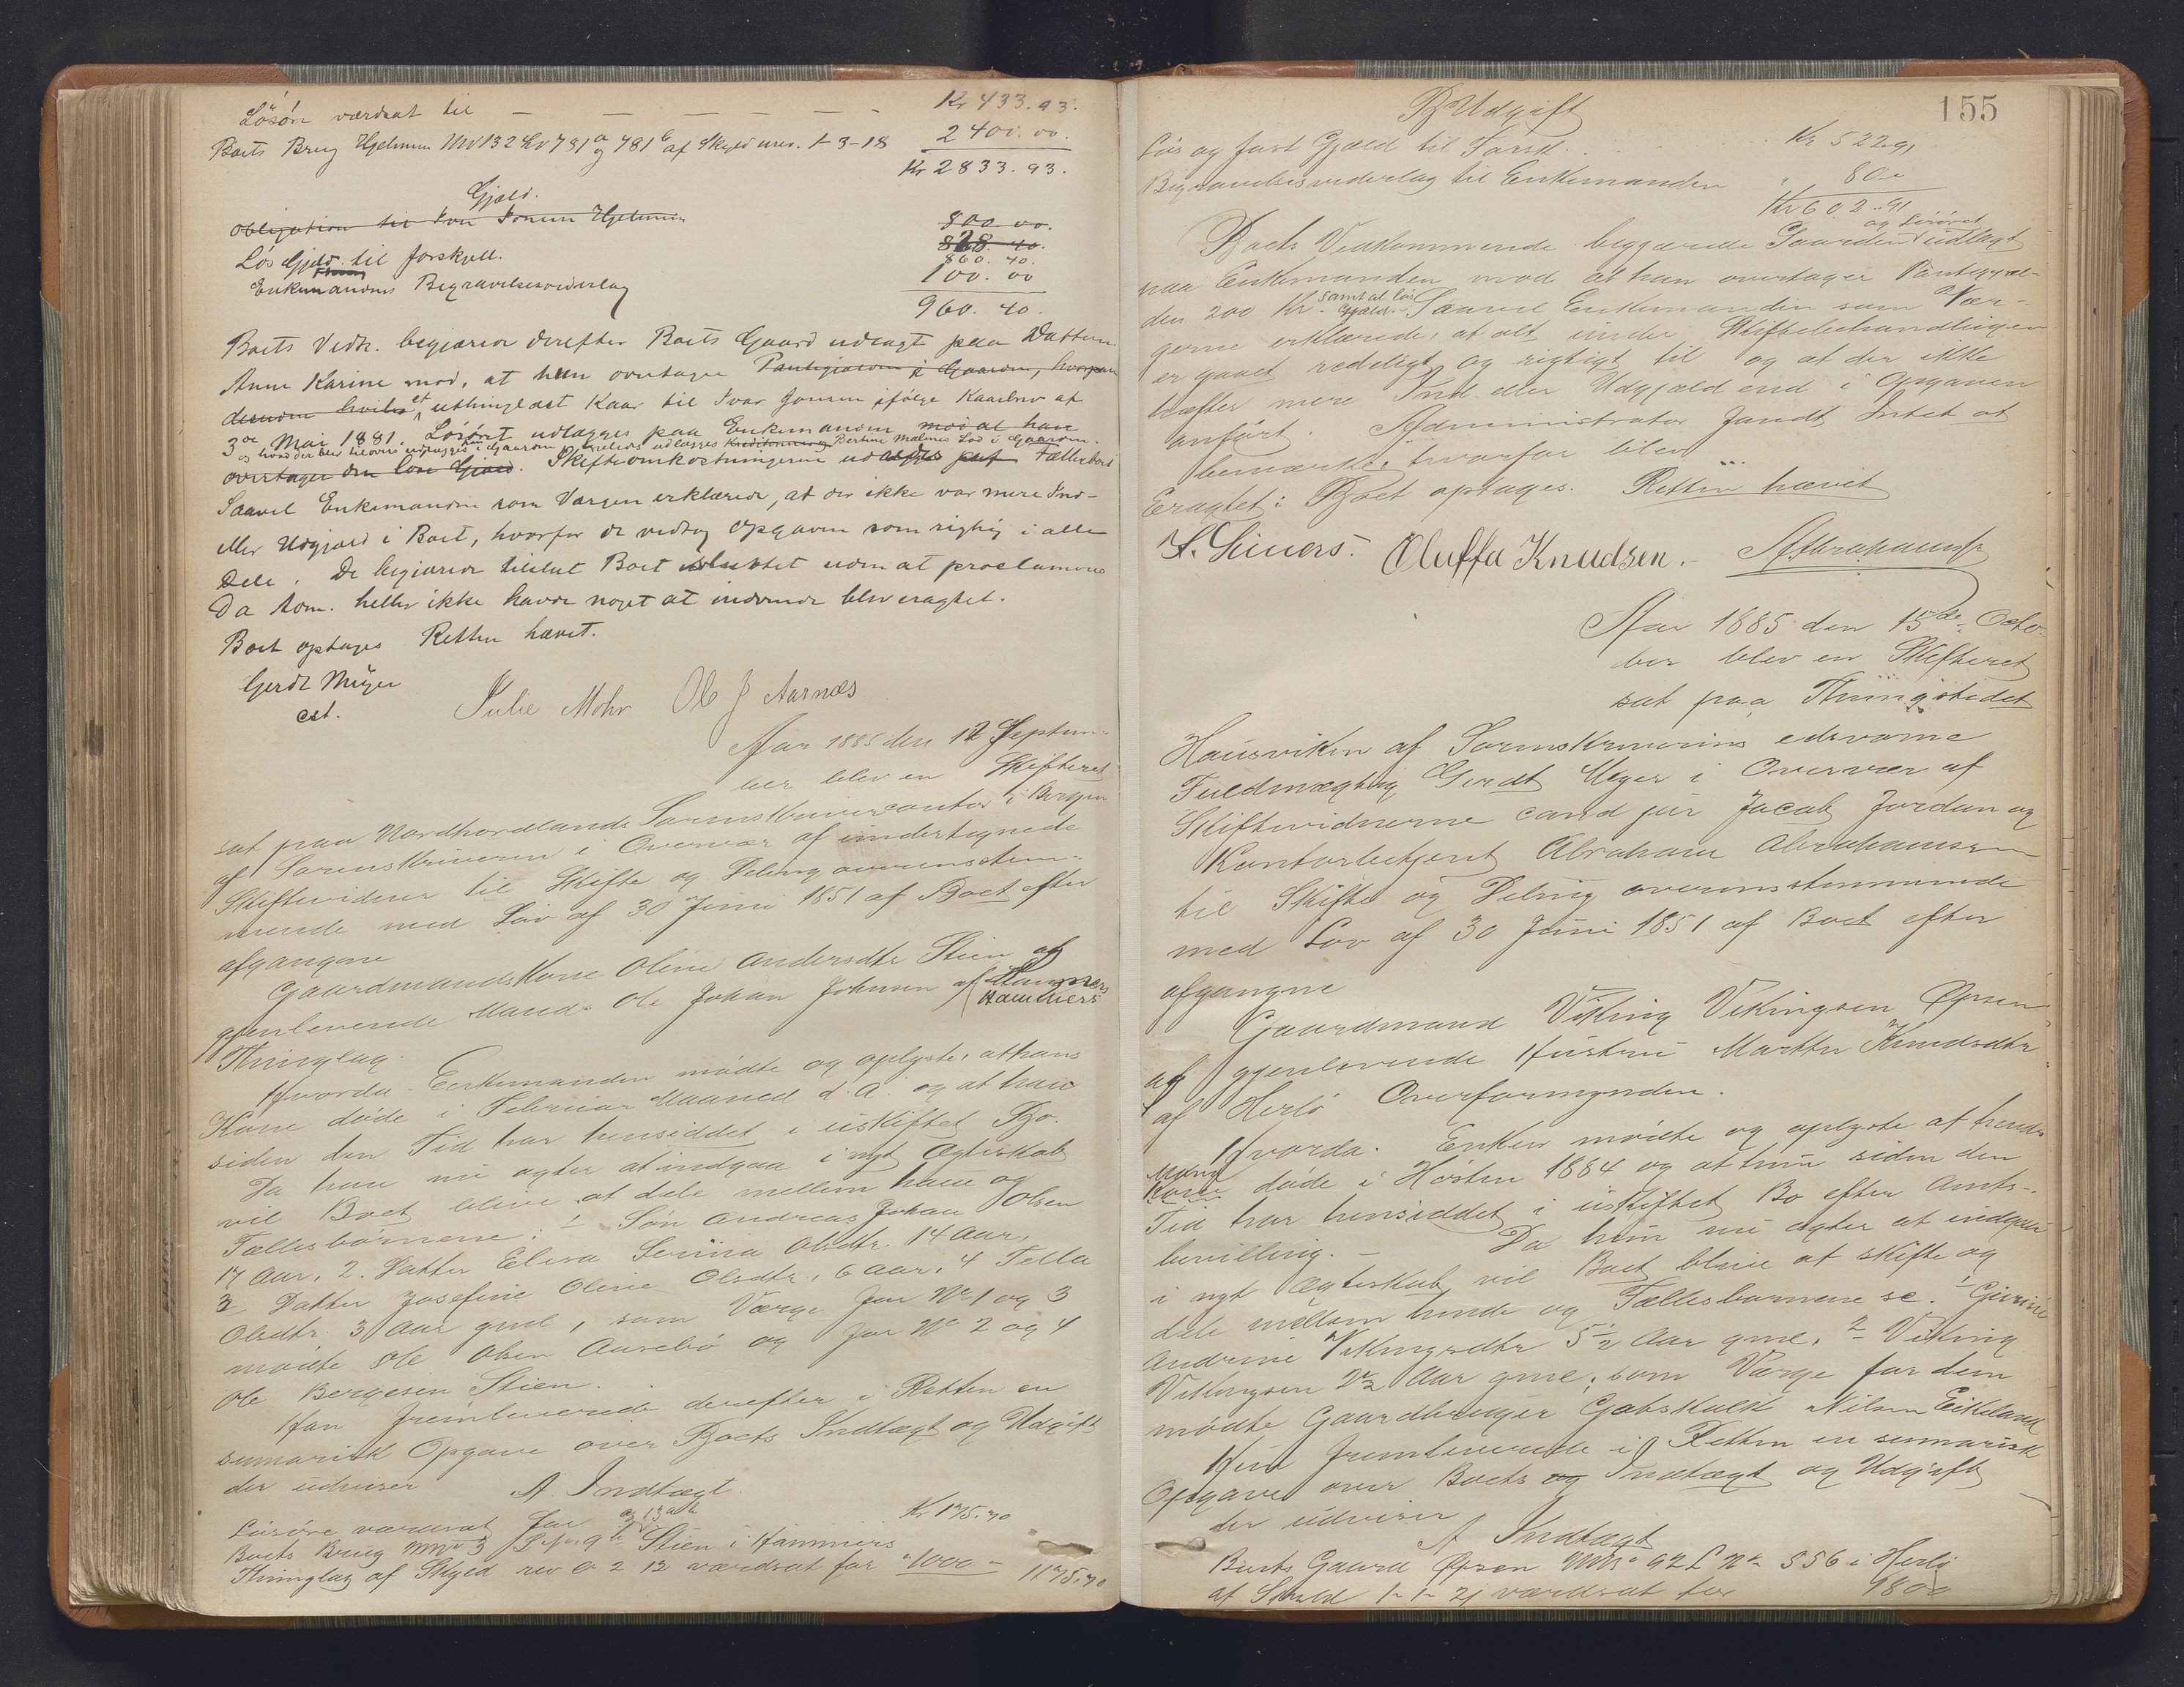 Løsøre værdsat til — — — — — — Kr 433.93.
Boets Brug Hjelmum MNo 132 Lo 781 a og 781 b af Skyld urev. 1-3-18 2400.00.
Kr 2833.93.
Gjæld.
Obligation til Ivar Jonsen Hjelmum 800.00.
Løs Gjæld til forskjell. 828.40.
860.40.
Enkemandens Begravelsesvederlag 100.00
960.40.
Boets Vedk. begjærede derefter Boets Gaard udlagt paa Datteren
Anne Karine mod, at hun overtager Pantegjælden i Gaarden, hvorpaa
desuden hviler et uthinglæst Kaar til Ivar Jonsen ifølge Kaarbrev af
3de Mai 1881. Løsøret udlægges paa Enkemanden mod at han
og hvad der blev tilovers udlægges i Gaarden ligeledes udlægges Kreditorerne og Bertine Malenes Lod i Gaarden.
overtager den løse Gjæld. Skifteomkostningerne udredes paa Fællesboet
Saavel Enkemanden som Værgen erklærede, at der ikke var mere Ind-
eller Udgjæld i Boet, hvorfor de vedtog Opgaven som rigtig i alle
Dele. De begjærede tilslut Boet sluttet uden at proclameres
Da Adm. heller ikke havde noget at indvende blev eragtet.
Boet optages Retten hævet.
Gerdt Meyer
cst.
Julie Mohr Ole J Aarnæs
Aar 1885 den 12 Septem-
ber blev en Skifteret
sat paa Nordhordlands Sorenskrivercontor i Bergen
af Sorenskriveren i Overvær af undertegnede
Skiftevidner til Skifte og Deling overensstem-
mende med Lov af 30 Juni 1851 af Boet efter
afgangne
Gaardmandskone Oline Andersdtr Stien af
gjenlevende Mand Ole Johan Johnsen af Hammers
Hammers
Thinglag.
Hvorda Enkemanden mødte og oplyste, at hans
Kone døde i Februar Maaned d.A. og at han
siden den Tid har hensiddet i uskiftet Bo.
Da han nu agter at indgaa i nyt Ægteskab
vil Boet blive at dele mellem ham og
Fællesbørnene: 1 Søn Andreas Johan Olsen
17 Aar, 2. Datter Elisa Serina Olsdtr. 14 Aar,
3 Datter Josefine Oline Olsdtr, 6 Aar, 4 Tella
Olsdtr. 3 Aar gml, som Værge for No 1 og 3
mødte Ole Olsen Aurebø og for No 2 og 4
Ole Bergesen Stien.
Han fremleverede derefter i Retten en
sumarisk Opgave over Boets Indtægt og Udgift
der udviser A. Indtægt.
Løsøre værdsat for Kr 175.70
Boets Brug MNo 3 LNo 9 b og 13 a b Stien i Hammers
Thinglag af Skyld rev 0 2 12 værdsat for "1000 " 1175.70
155
B Udgift
Løs og fast Gjæld til Forsk. Kr 522.91
Begravelsesvederlag til Enkemanden " 80 "
Kr 602.91
Boets Vedkommende begjærede Gaarden og Løsøret udlagt
paa Enkemanden mod at han overtager Pantegjæl-
den 200 Kr. samt al løs Gjæld. Saavel Enkemanden som Vær-
gerne erklærede, at alt under Skiftebehandlingen
er gaaet redeligt og rigtigt til og at der ikke
hæfter mere Ind eller Udgjæld end i Opgaven
anført. Administrator fandt Intet at
bemærke, hvorfor blev
Eragtet: Boet optages. Retten hævet
Oluffa Knudsen. AAbrahamsen
Aar 1885 den 15de Octo-
ber blev en Skifteret
sat paa Thingstedet
Hausviken af Sorenskriverens edsvorne
Fuldmægtig Gerdt Meyer i Overvær af
Skiftevidnerne cand jur Jacob Jordan og
Kontorbetjent Abraham Abrahamsen
til Skifte og Deling overensstemmende
med Lov af 30 Juni 1851 af Boet efter
afgangne
Gaardmand Viking Vikingsen Øpsen
af gjenlevende Hustru Marthe Knudsdtr
af Herlø Overformynderi.
Hvorda. Enken mødte og oplyste at hendes
Mand
Kone døde i Høsten 1884 og at hun siden den
Tid har hensiddet i uskiftet Bo efter Amts-
bevilling. — Da hun nu agter at indgaa
i nyt Ægteskab vil Boet blive at skifte og
dele mellem hende og Fællesbørnene se. 1 Gurine
Andrine Vikingsdtr 5½ Aar gml. 2 Viking
Vikingsen 2½ Aar gml; som Værge for dem
mødte Gaardbruger Gotskalk Nilsen Eikeland
Hun fremleverede i Retten en sumarisk
Opgave over Boets og Indtægt og Udgift
der udviser
A Indtægt
Boets Gaard Øpsen MNo 92 LNo 556 i Herlø
af Skyld 1-1-21 værdsat for 1800